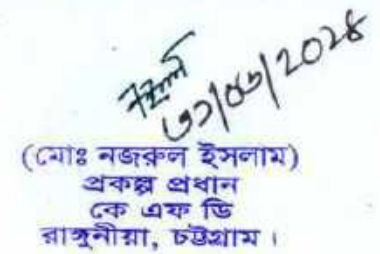 ৩১/০৩/2024
(মোঃ নজরুল ইসলাম)
প্রকল্প প্রধান
কে এফ ডি
রাঙ্গুনীয়া, চট্টগ্রাম।